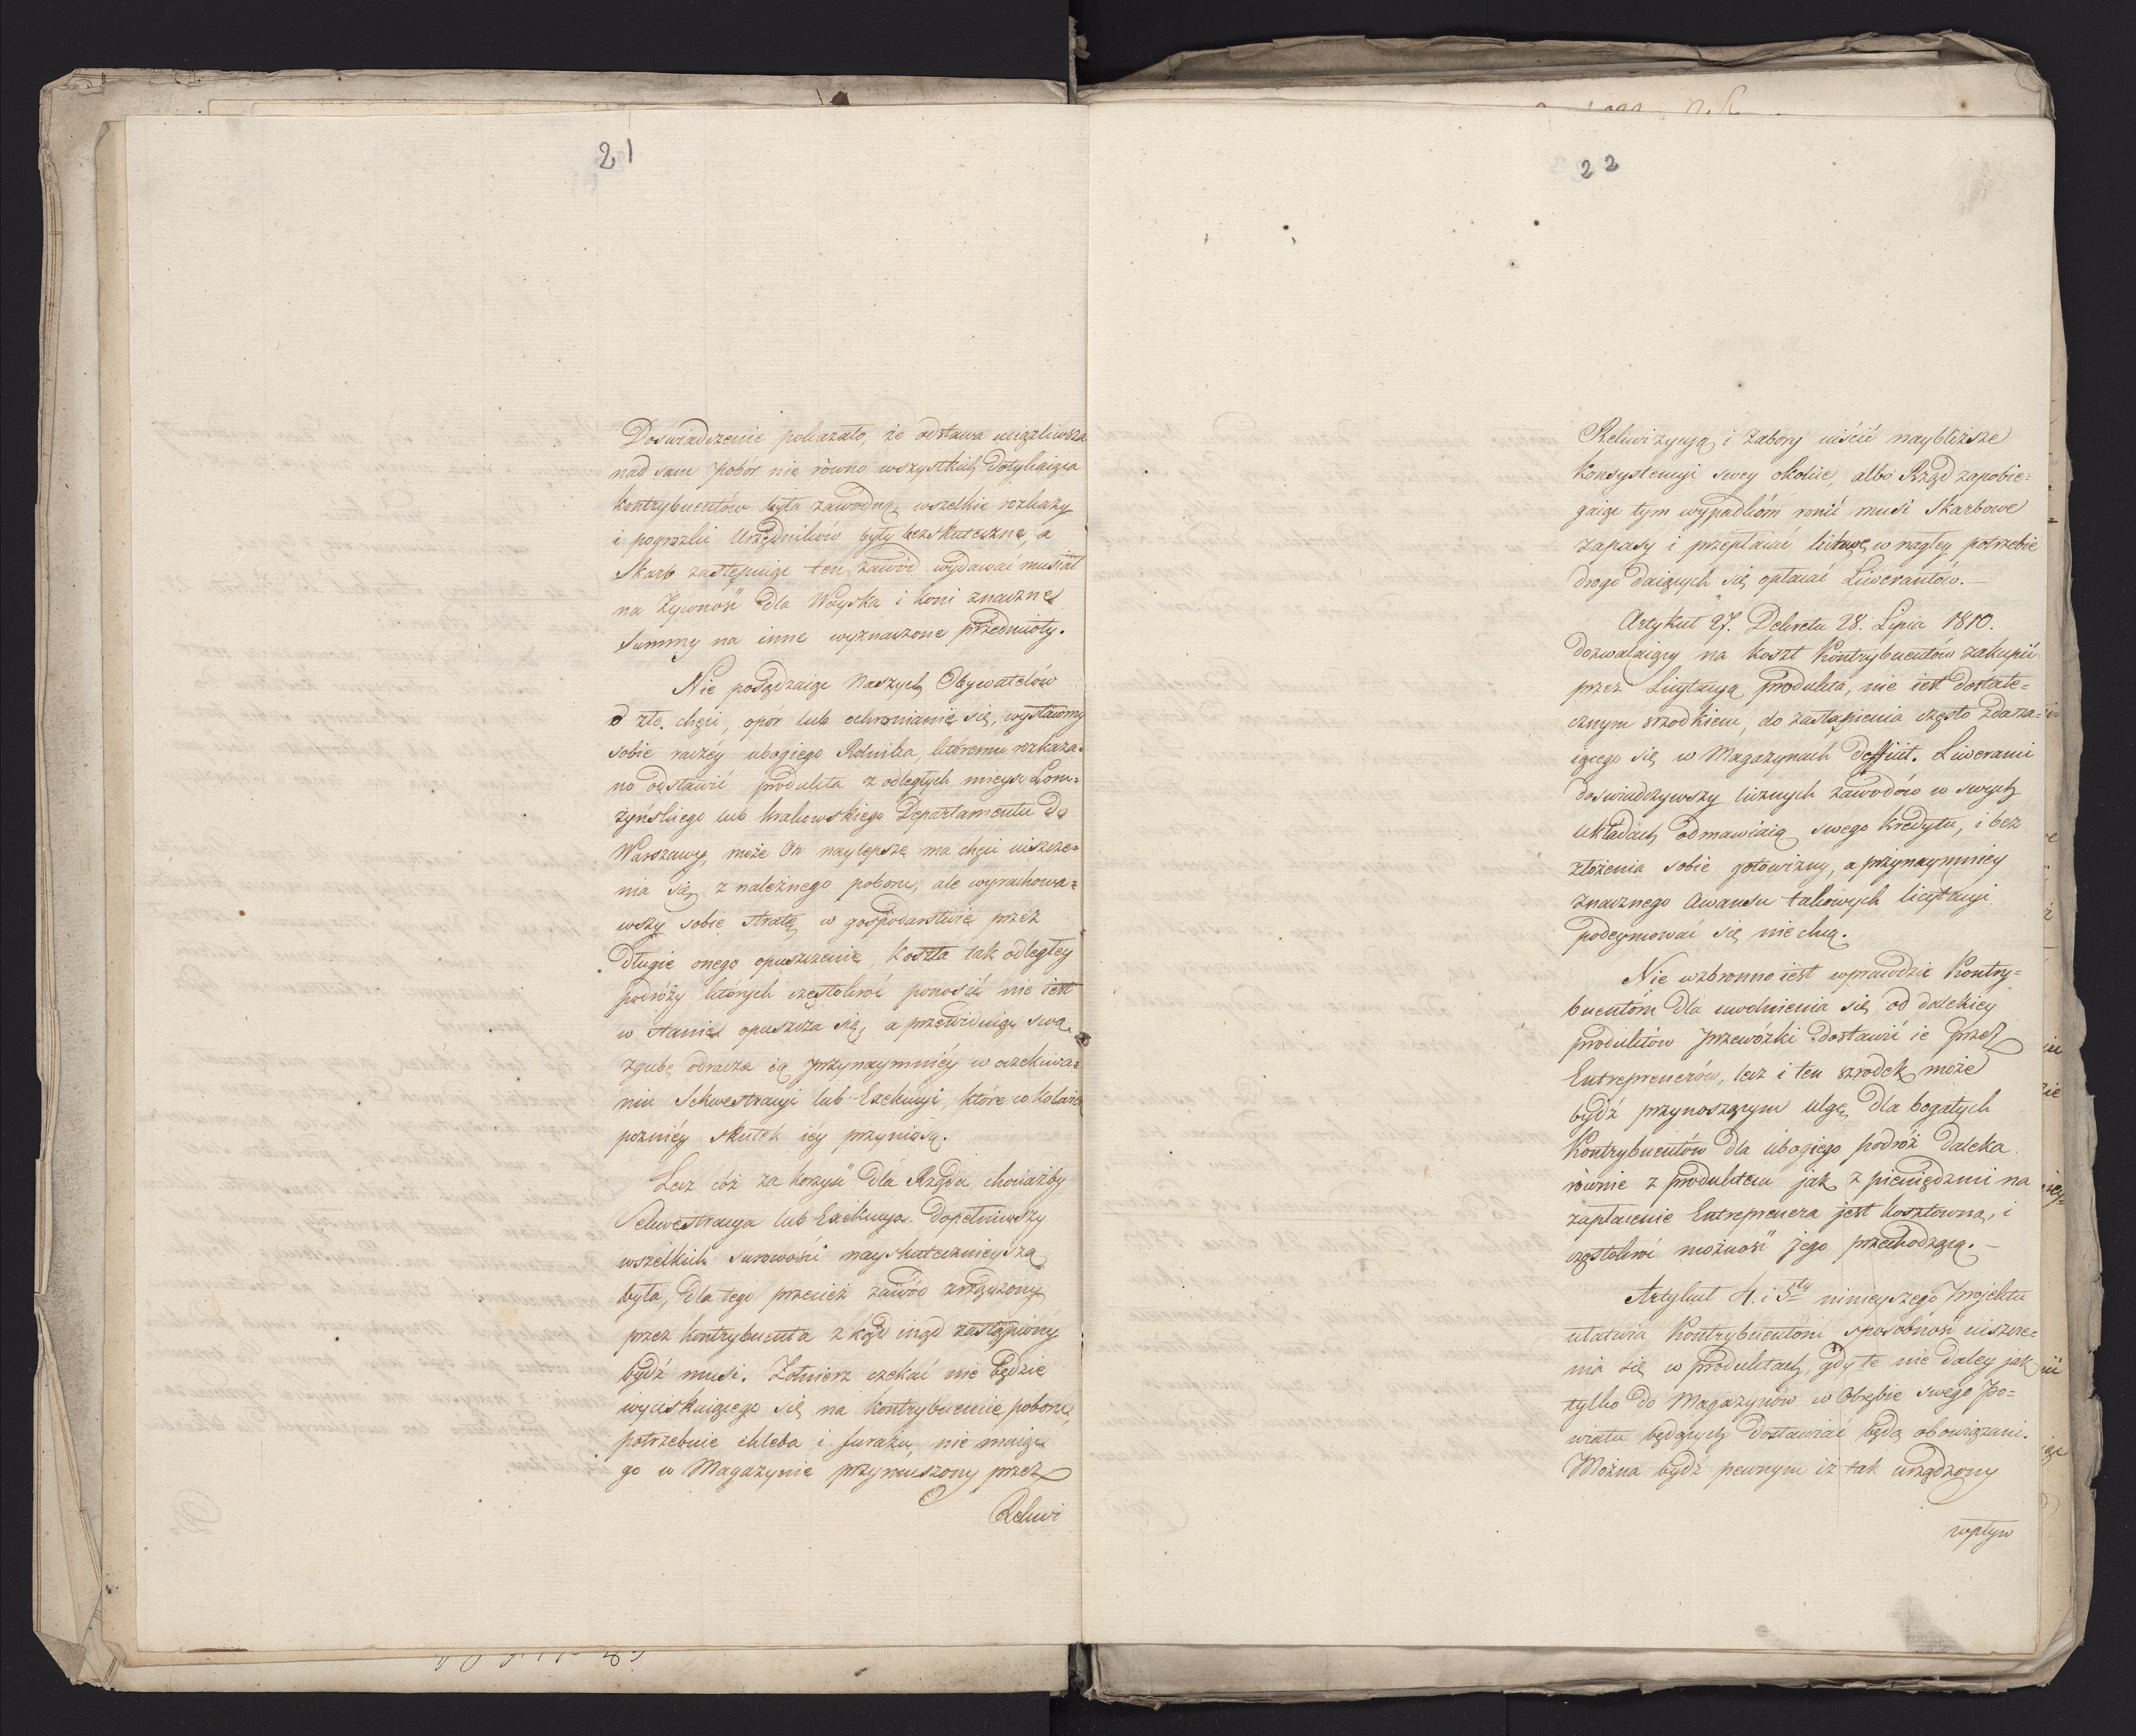 21
Doświadczenie pokazało, że odstawa uciążliwsza
nad sam pobór nie równo wszystkich dotykaiąca
kontrybuentów była zawodną, wszelkie rozkazy
i pogrozki Urzędników były bezskuteczne, a
Skarb zastępuiąc ten zawód wydawać musiał
na Żywność dla Woyska i koni znaczne
Summy na inne wyznaczone przedmioty.
Nie posądzaiąc Naszych Obywatelów
o złe chęci, opór lub ochranianie się, wystawmy
sobie raczéy ubogiego Rolnika, któremu rozkaza=
no odstawić produkta z odległych mieysc Łom=
żyńskiego lub Krakowskiego Departamentu do
Warszawy, może On naylepsze ma chęci uiszcze=
nia się z należnego poboru, ale wyrachowa=
wszy sobie stratę w gospodarstwie przez
długie onego opuszczenie, koszta tak odległey
podróży których częstokroć ponosić nie iest
w stanie opuszcza się, a przewiduiąc swą
zgubę odracza ią przynaymniéy w oczekiwa=
niu Sekwestracyi lub Exekucyi, które cokolwiek
poźniéy skutek iéy przyniosą.
Lecz cóż za korzyść dla Rządu chociażby
Sekwestracya lub Exekucya dopełniwszy
wszelkich surowości nayskutecznieyszą
była, dla tego przecież zawód zrządzony
przez kontrybuenta z kąd inąd zastąpiony
bydź musi. Żołnierz czekać nie będzie
wyciskaiącego się na kontrybuencie poboru,
potrzebuie chleba i furażu, nie maiąc
go w Magazynie przymuszony przez
Rekwi
22
Rekwizycyą i Zabory uiścić naybliższe
Konsystencyi swey okolice, albo Rząd zapobie=
gaiąc tym wypadkóm ronić musi Skarbowe
zapasy i przepłacać w nagłey potrzebie
drogo daiących się opłacać Liwerantów.—
Artykuł 27. Dekretu 28. Lipca 1810.
dozwalaiący na koszt Kontrybuentów zakupić
przez Licytacyą produkta, nie iest dostate=
cznym srzodkiem, do zastąpienia często zdarza=
iącego się w Magazynach Deffiiit. Liweranci
doświadczywszy licznych zawodów w swych
układach odmawiaią swego kredytu, i bez
złożenia sobie gotowizny, a przynaymniey
znacznego Awansu takowych licytacyi
podeymować się nie chcą.
Nie wzbronno iest wprawdzie Kontry=
buentom dla uwolnienia się od dalekiey
produktów przewózki dostawić ie przez
Entreprenerów, lecz i ten szrodek może
bydź przynoszącym ulgę dla bogatych
Kontrybuentów dla ubogiego podróż daleka
równie z produktem jak z pieniędzmi na
zapłacenie Entreprenera jest kosztowną, i
częstokroć możność jego przechodzącą.—
Artykuł 4. i 5ty ninieyszego Projektu
ułatwia Kontrybuentom sposobność uiszcze=
nia się w produktach, gdy te nie daley jak
tylko do Magazynów w Obrębie swego Po=
wiatu będących dostawiać będą obowiązani.
Można bydź pewnym iż tak urządzony
wpływ